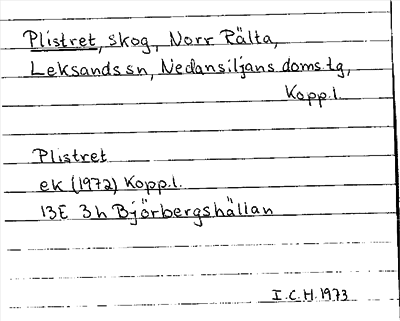 Plistret, skog, Norr Rälta,
Leksands sn, Nedansiljans doms.tg,
Kopp.l.
Plistret
ek (1972) Kopp.l.
13E 3h Björbergshällan
I.C.H. 1973